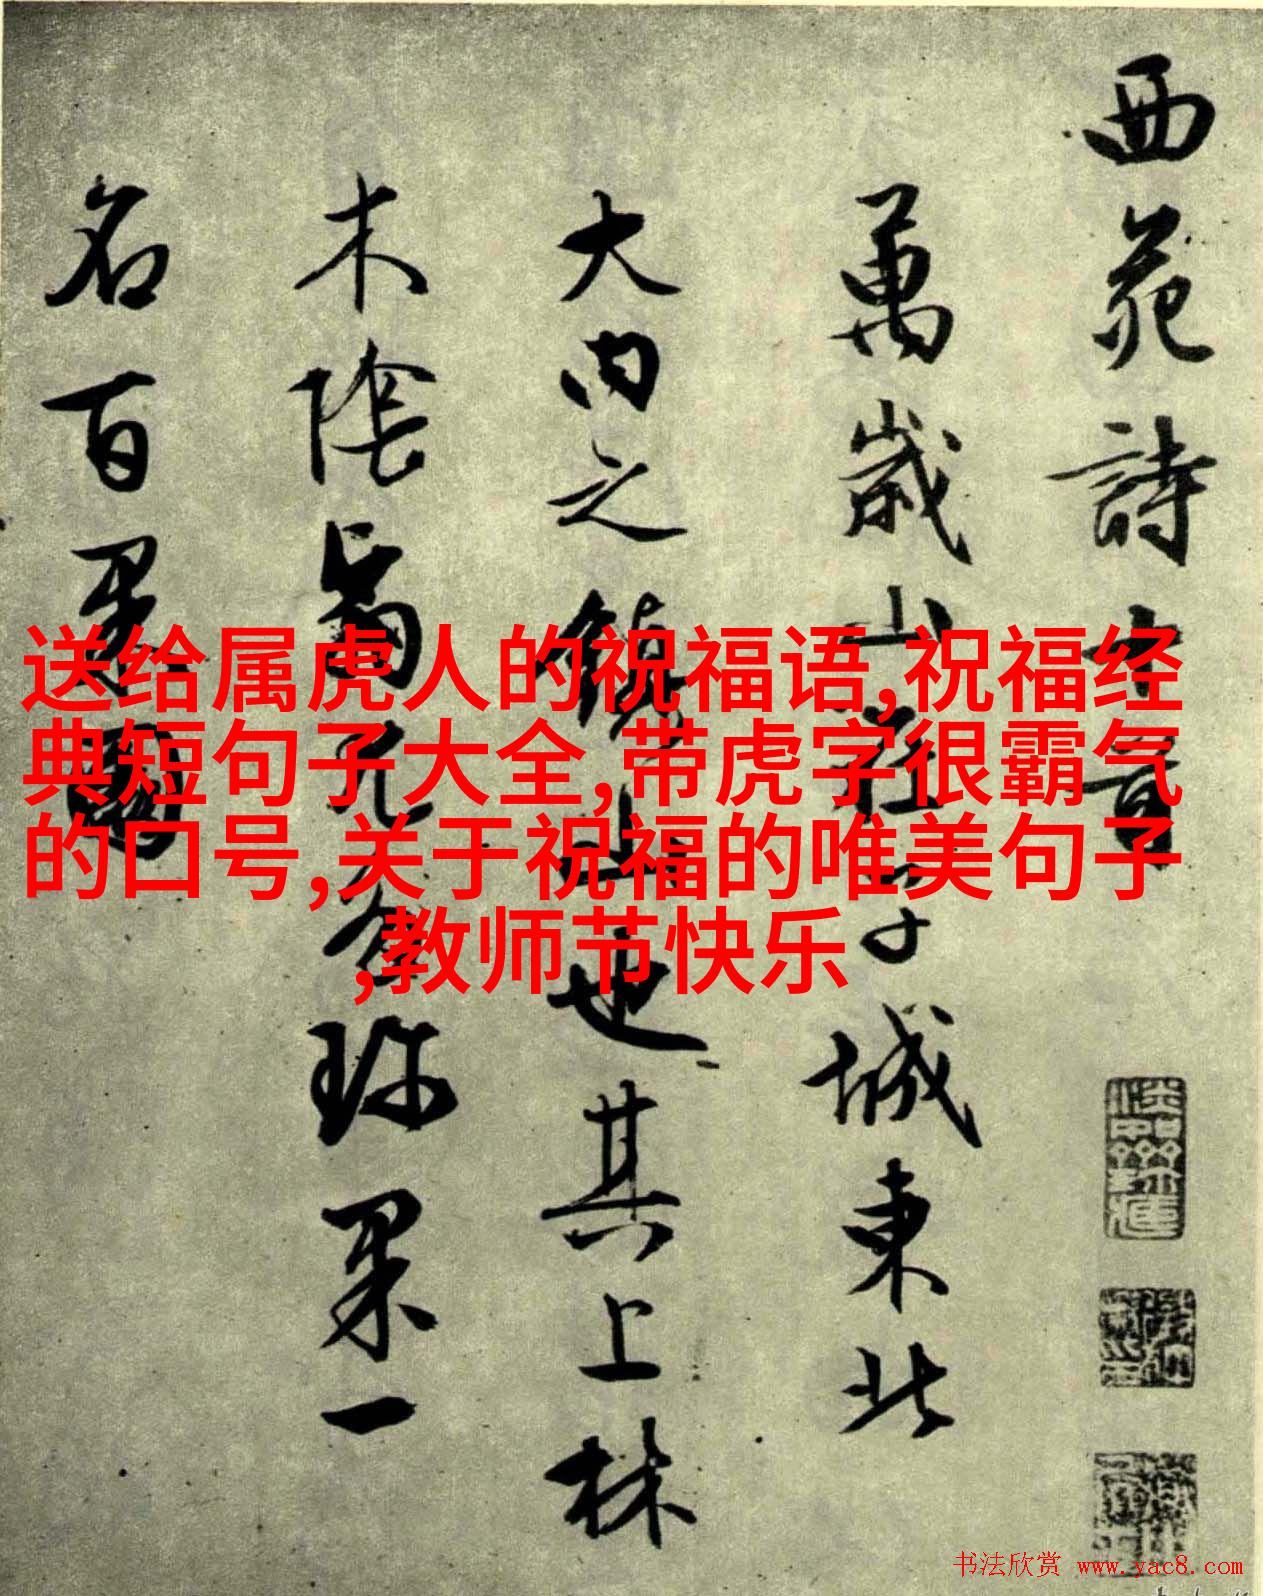 西苑詩十首
萬歲山在子城東北
大内之鎮山也其上林
木陰翳尤多珍果一
名百果園
送给属虎人的祝福语,祝福经
典短句子大全,带虎字很霸气
的口号,关于祝福的唯美句子
,教师节快乐
书法欣赏 www.yac8.com